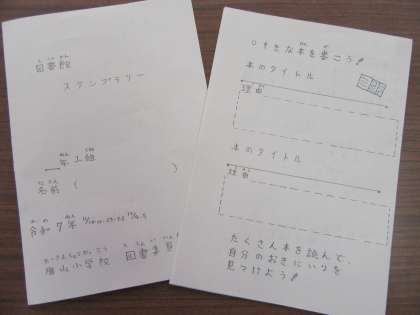 図書館
スタンプラリー
年 組
名前 ( )
令和7年
小学校 図書委員
○すきな本を書こう!
本のタイトル
理由
本のタイトル
理由
たくさん本を読んで、
自分のおきにいりを
見つけよう!